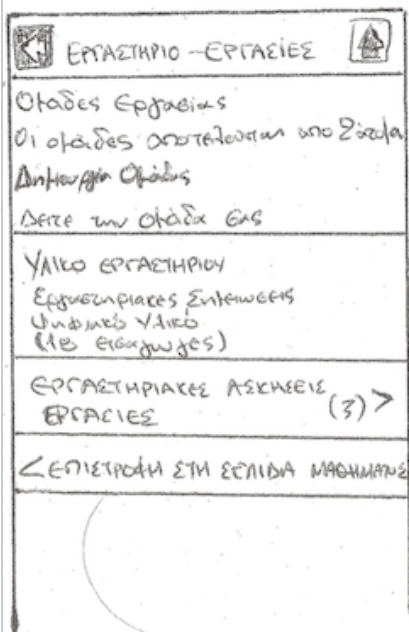 ΕΡΓΑΣΤΗΡΙΟ - ΕΡΓΑΣΙΕΣ
Ομάδες Εργασίας
Οι ομάδες αποτελούνται απο 2άτομα
Δημιουργία Ομάδας
Δειτε την ομάδα σας
ΥΛΙΚΟ ΕΡΓΑΣΤΗΡΙΟΥ
Εργαστηριακες Σημειωσεις
Ψηφιακό Υλικό
(1β εισαγωγες)
ΕΡΓΑΣΤΗΡΙΑΚΕΣ ΑΣΚΗΣΕΙΣ
ΕΡΓΑΣΙΕΣ (3) >
< ΕΠΙΣΤΡΟΦΗ ΣΤΗ ΣΕΛΙΔΑ ΜΑΘΗΜΑΤΟΣ